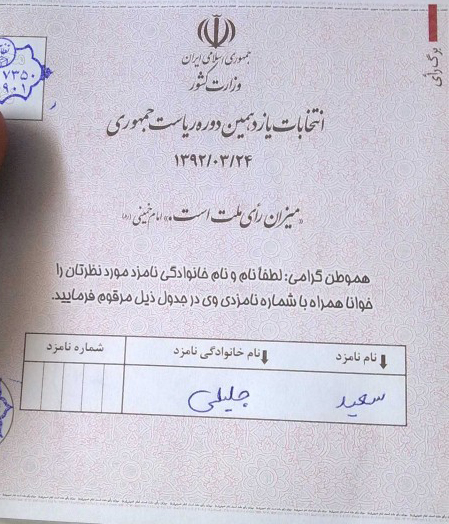 برگ رأی
جمهوری اسلامی ایران
وزارت کشور
انتخابات یازدهمین دوره ریاست جمهوری
۱۳۹۲/۰۳/۲۴
«میزان رأی ملت است.» امام خمینی (ره)
هموطن گرامی: لطفاً نام و نام خانوادگی نامزد مورد نظرتان را
خوانا همراه با شماره نامزدی وی در جدول ذیل مرقوم فرمایید.
نام نامزد نام خانوادگی نامزد شماره نامزد
سعید جلیلی
۷۳۵۰
۹۰۱